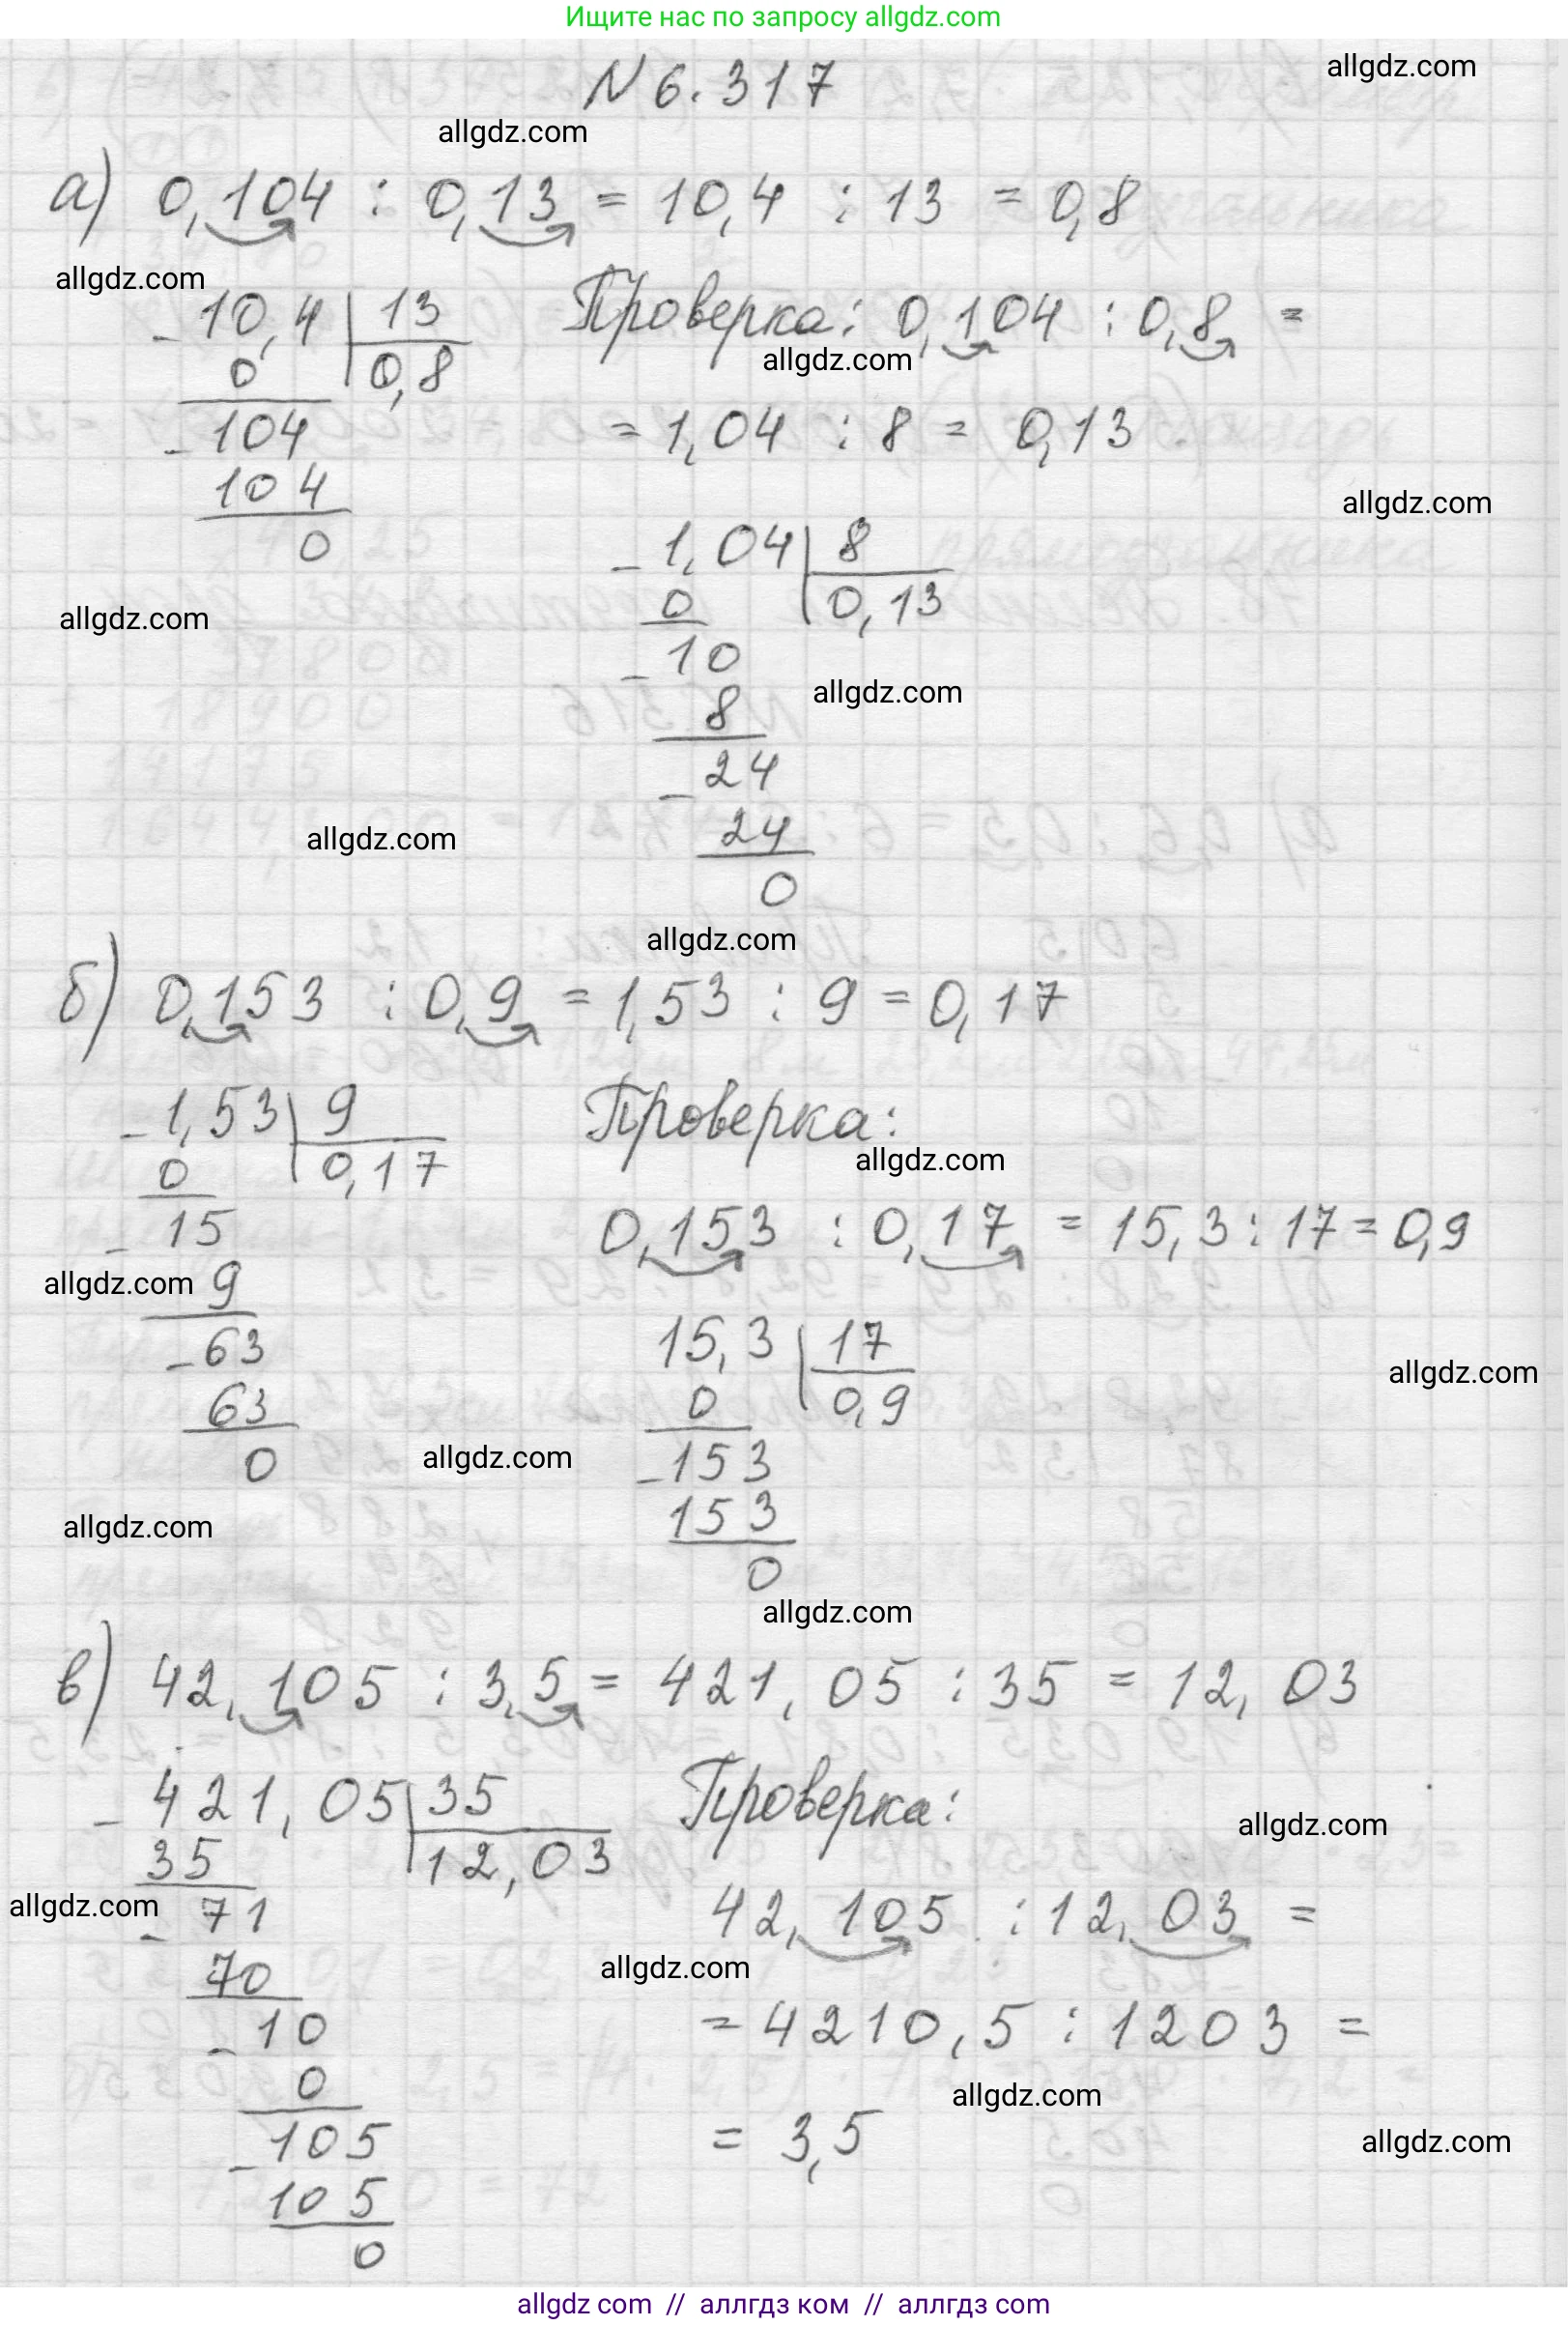 Ищите нас по запросу allgdz.com
N 6.317
allgdz.com
allgdz.com
а) 0,104 : 0,13 = 10,4 : 13 = 0,8
allgdz.com
- 10,4 | 13
0 | 0,8
- 104
104
0
Проверка: 0,104 : 0,8 =
allgdz.com
= 1,04 : 8 = 0,13
allgdz.com
- 1,04 | 8
0 | 0,13
- 10
8
- 24
24
0
allgdz.com
allgdz.com
allgdz.com
allgdz.com
б) 0,153 : 0,9 = 1,53 : 9 = 0,17
- 1,53 | 9
0 | 0,17
- 15
9
- 63
63
0
allgdz.com
Проверка:
allgdz.com
0,153 : 0,17 = 15,3 : 17 = 0,9
15,3 | 17
0 | 0,9
- 153
153
0
allgdz.com
allgdz.com
allgdz.com
allgdz.com
в) 42,105 : 3,5 = 421,05 : 35 = 12,03
- 421,05 | 35
35 | 12,03
- 71
70
- 10
0
- 105
105
0
allgdz.com
Проверка:
allgdz.com
42,105 : 12,03 =
allgdz.com
= 4210,5 : 1203 =
allgdz.com
= 3,5
allgdz.com
allgdz com // аллгдз ком // аллгдз com